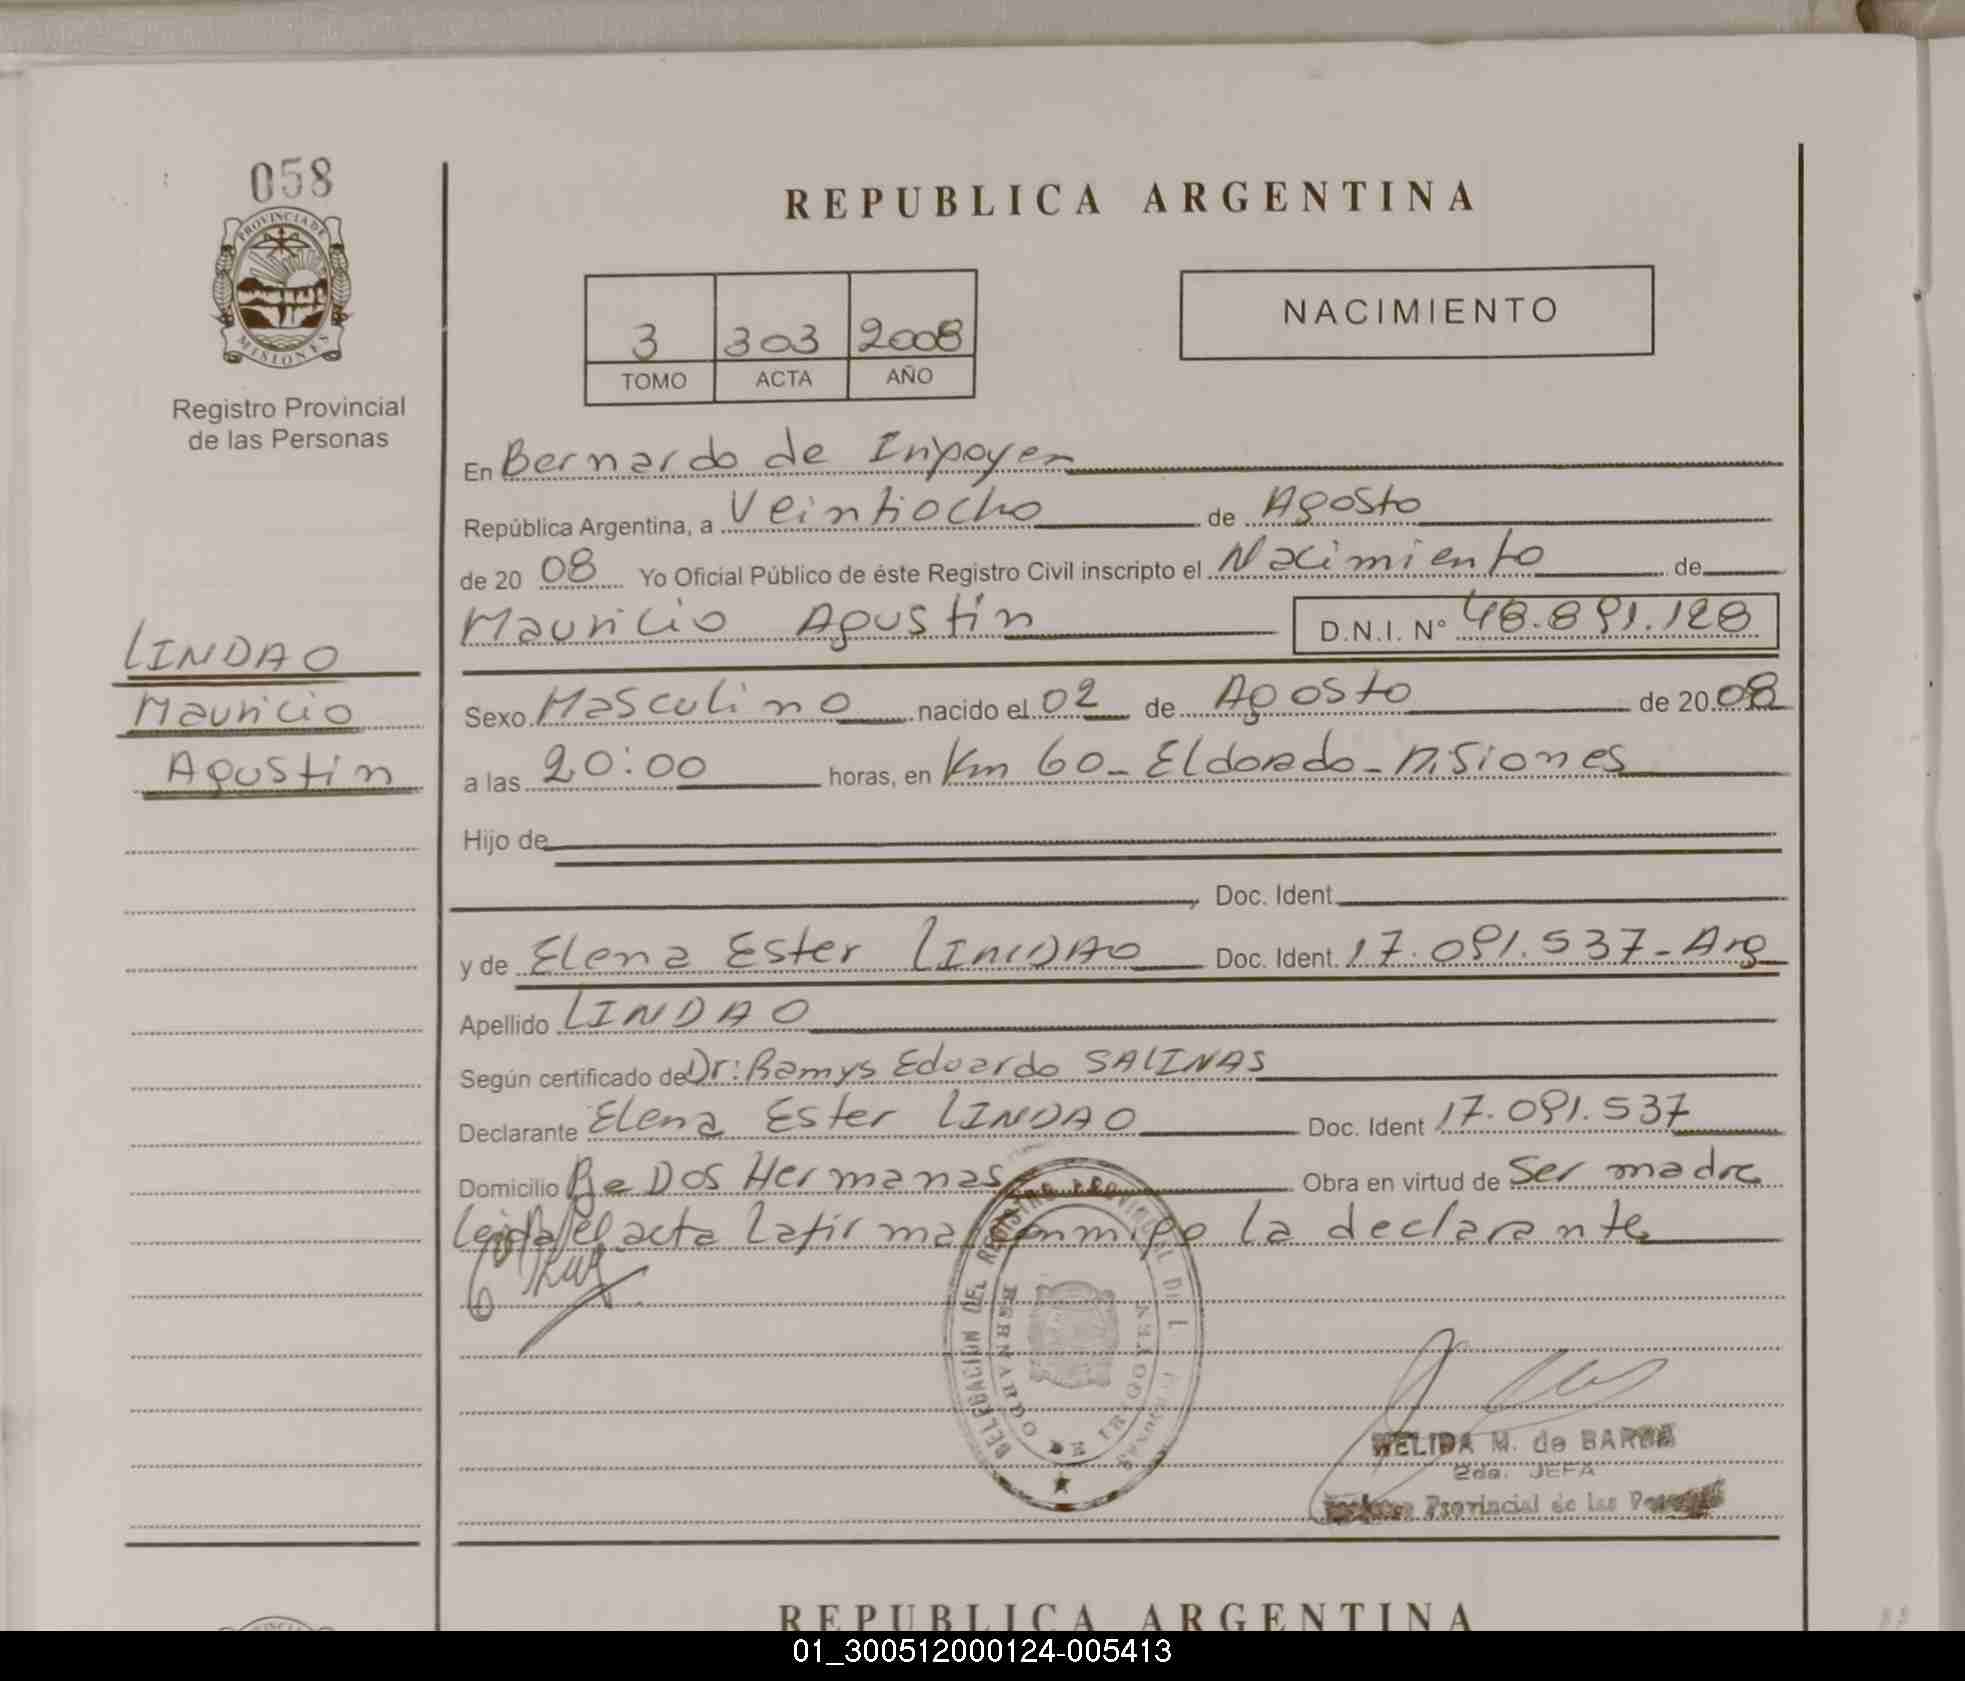 058
PROVINCIA DE
MISIONES
Registro Provincial
de las Personas
LINDAO
Mauricio
Agustín
REPUBLICA ARGENTINA
3 303 2008
TOMO ACTA AÑO
NACIMIENTO
En Bernardo de Irigoyen
República Argentina, a Veintiocho de Agosto
de 20 08 Yo Oficial Público de éste Registro Civil inscripto el Nacimiento de
Mauricio Agustín D.N.I. N° 48.891.128
Sexo Masculino nacido el 02 de Agosto de 20 08
a las 20:00 horas, en Km 60 - Eldorado - Misiones
Hijo de
Doc. Ident.
y de Elena Ester LINDAO Doc. Ident. 17.091.537 - Arg
Apellido LINDAO
Según certificado de Dr: Ramys Eduardo SALINAS
Declarante Elena Ester LINDAO Doc. Ident 17.091.537
Domicilio Bº Dos Hermanas Obra en virtud de Ser madre
Leida el acta la firma conmigo la declarante
DELEGACION DEL REGISTRO PROVINCIAL DE L
BERNARDO DE IRIGOYEN
NELIDA M. de BARBA
2da. JEFA
Provincial de las
REPUBLICA ARGENTINA
01_300512000124-005413